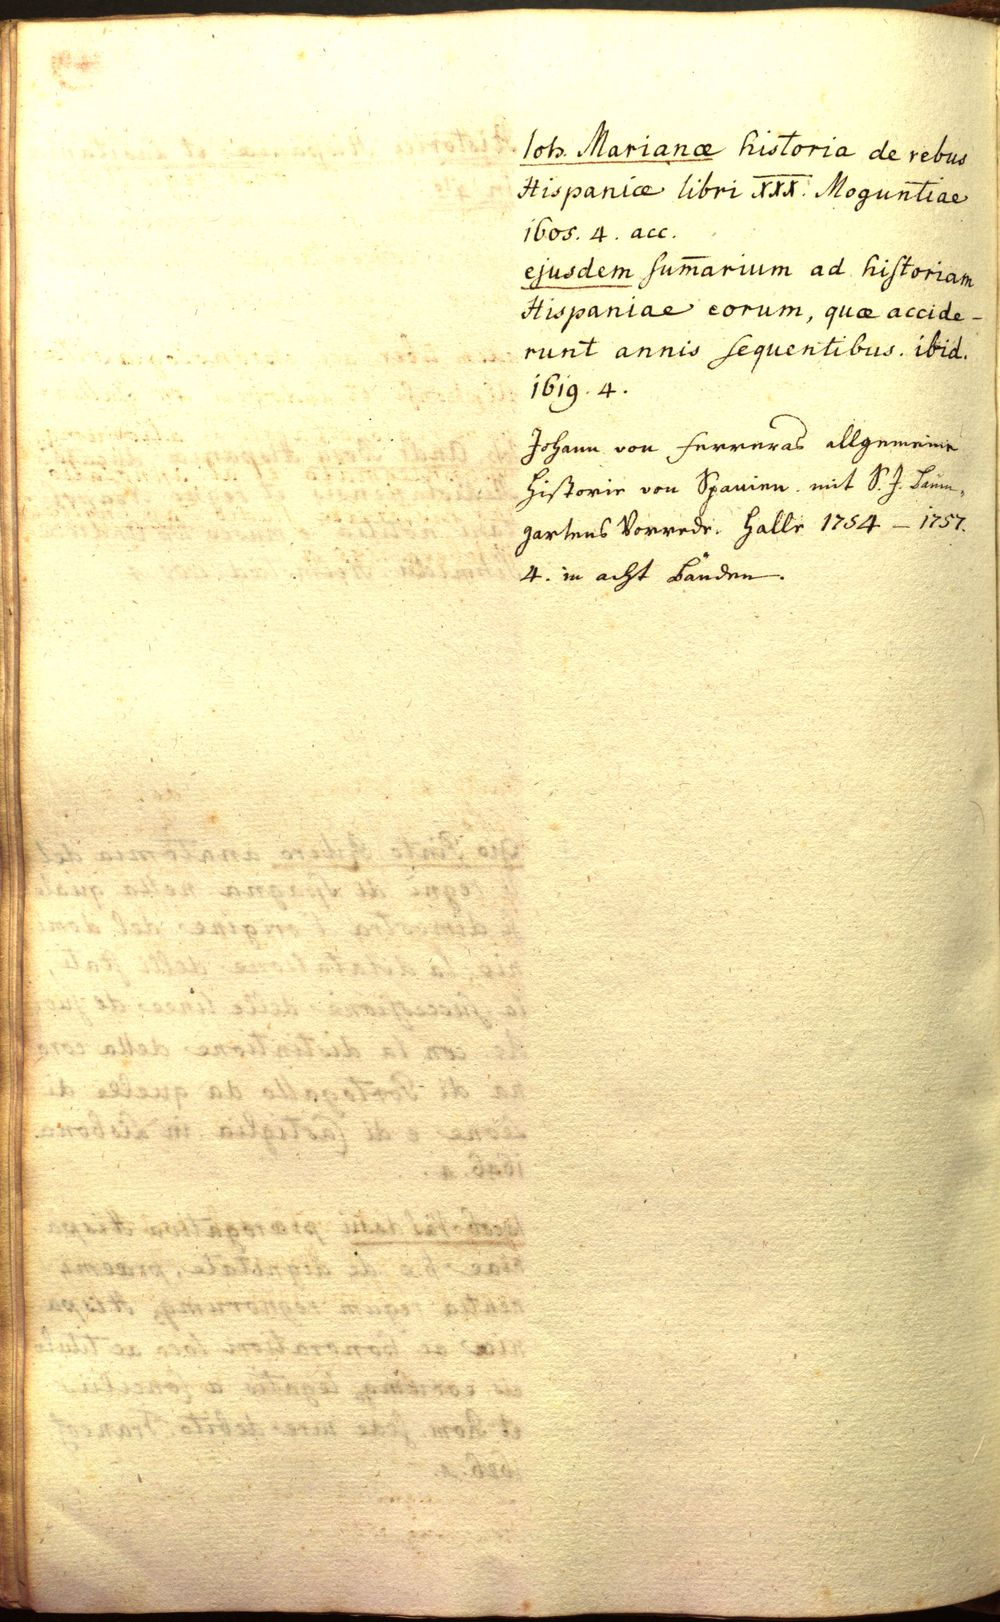 Ioh. Marianæ historia de rebus
Hispaniæ libri XXX. Moguntiae
1605. 4. acc.
ejusdem sum̄arium ad hiſtoriam
Hispaniae eorum, quæ accide-
runt annis ſequentibus. ibid.
1619. 4.
Johann von Ferreras allgemeine
Historie von Spanien. mit S. J. Baum-
gartens Vorrede. Halle 1754 – 1757.
4. in acht Bänden.